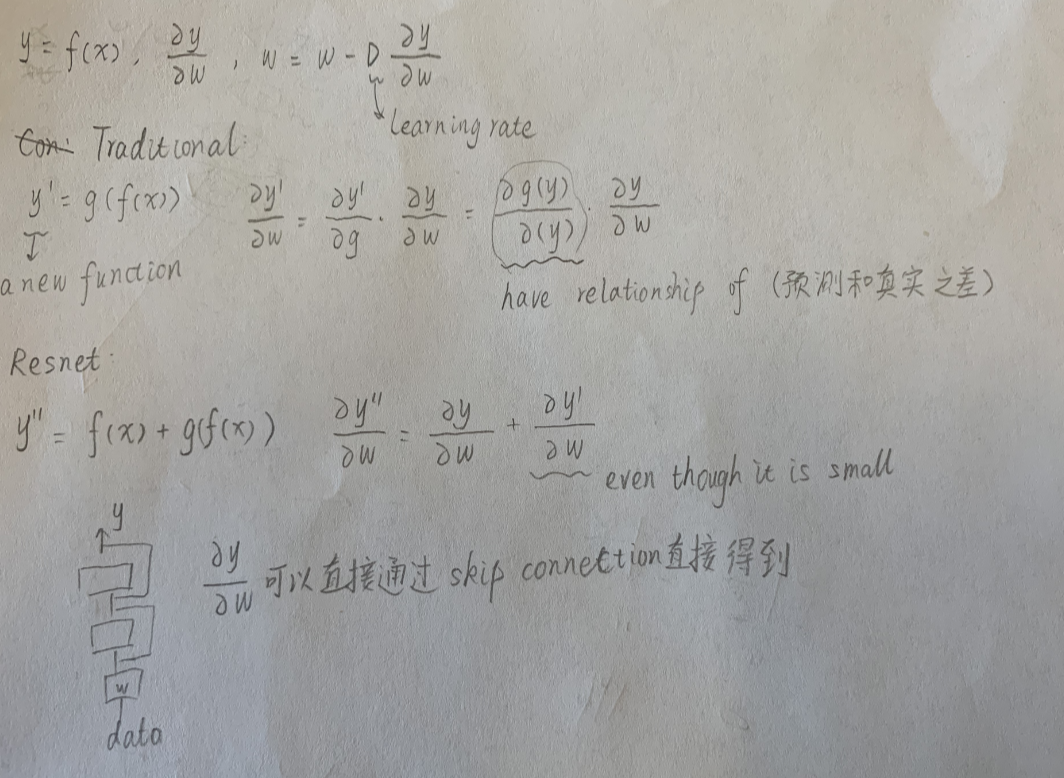 y = f(x), ∂y/∂w, w = w - D ∂y/∂w
learning rate
Con: Traditional:
y' = g(f(x)) ∂y'/∂w = ∂y'/∂g · ∂y/∂w = ∂g(y)/∂(y) · ∂y/∂w
a new function
have relationship of (预测和真实之差)
Resnet:
y'' = f(x) + g(f(x)) ∂y''/∂w = ∂y/∂w + ∂y'/∂w
even though it is small
y
∂y/∂w 可以直接通过 skip connettion直接得到
w
data